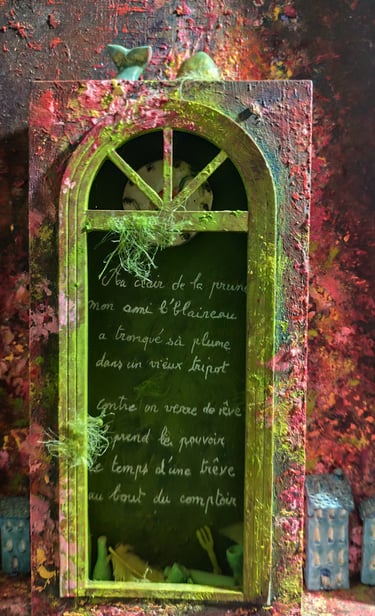 Au clair de la prune
mon ami l'blaireau
a tronqué sa plume
dans un vieux tripot
contre un verre de rêve
prend le pouvoir
le temps d'une trêve
au bout du comptoir